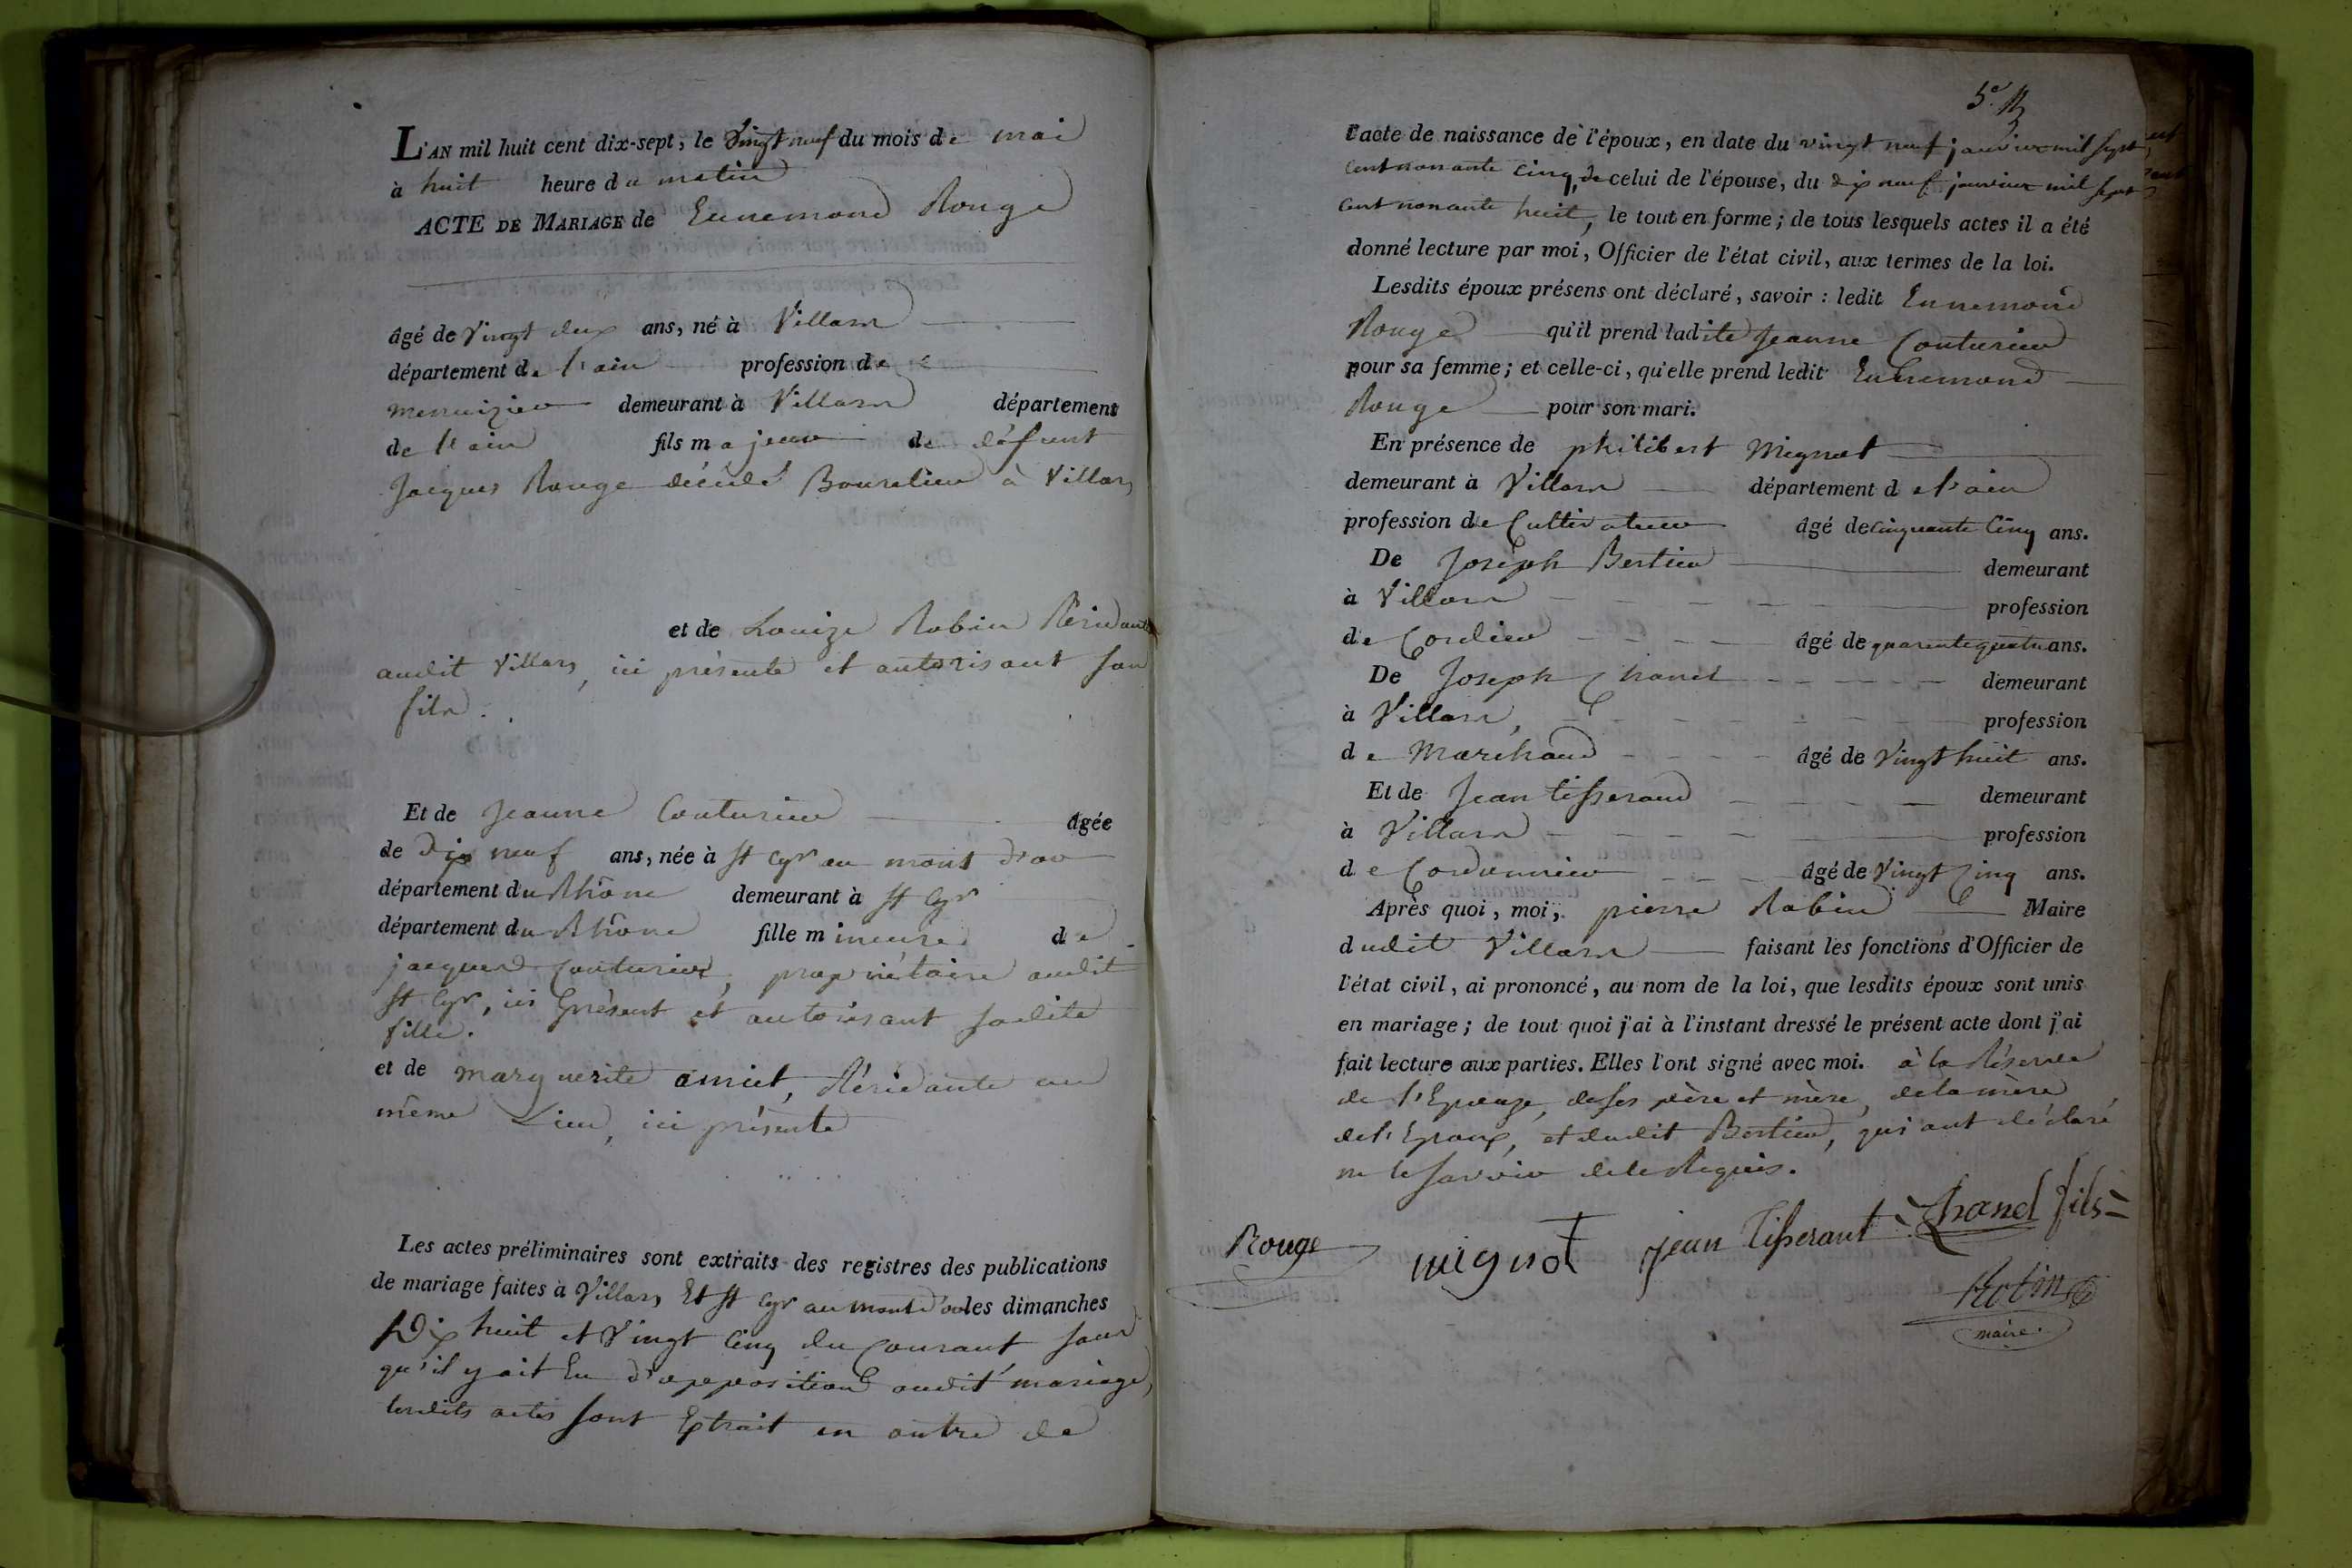 L'AN mil huit cent dix-sept, le vingt neuf du mois de mai
à huit heure du matin
ACTE DE MARIAGE de Ennemond Rouge
âgé de vingt deux ans, né à Villars
département de l'ain profession de
menuizier demeurant à Villars département
de l'ain fils majeur de défunt
Jacques Rouge décédé Bourelier à Villars
et de Louize Robin Résidante
audit Villars, ici présente et autorisant son
fils.
Et de Jeanne Couturier âgée
de dix neuf ans, née à St Cyr au mont d'or
département du Rhône demeurant à St Cyr
département du Rhône fille mineure de
jacques Couturier, propriétaire audit
St Cyr, ici présent et autorisant sadite
fille.
et de marguerite amiet, Résidante au
même Lieu, ici présente
Les actes préliminaires sont extraits des registres des publications
de mariage faites à Villars Et St Cyr au mont d'or les dimanches
Dix huit et Vingt Cinq du Courant sans
qu'il y ait Eu d'opposition audit mariage,
lesdits actes sont Extrait en outre de
5e
l'acte de naissance de l'époux, en date du vingt neuf janvier mil sept
cent nonante cinq, de celui de l'épouse, du dix neuf janvier mil sept
cent nonante huit, le tout en forme; de tous lesquels actes il a été
donné lecture par moi, Officier de l'état civil, aux termes de la loi.
Lesdits époux présens ont déclaré, savoir : ledit Ennemond
Rouge qu'il prend ladite Jeanne Couturier
pour sa femme; et celle-ci, qu'elle prend ledit Ennemond
Rouge pour son mari.
En présence de philibert Mignot
demeurant à Villars département de l'ain
profession de Cultivateur âgé de cinquante Cinq ans.
De Joseph Bertier demeurant
à Villars profession
de Cordier âgé de quarente quatre ans.
De Joseph Chanel demeurant
à Villars, profession
de Marchand âgé de Vingt huit ans.
Et de Jean tisserand demeurant
à Villars profession
de Cordonnier âgé de Vingt Cinq ans.
Après quoi, moi, pierre Robin Maire
dudit Villars faisant les fonctions d'Officier de
l'état civil, ai prononcé, au nom de la loi, que lesdits époux sont unis
en mariage; de tout quoi j'ai à l'instant dressé le présent acte dont j'ai
fait lecture aux parties. Elles l'ont signé avec moi. à la Réserve
de l'Epouze, de ses père et mère, de la mère
de l'Epoux, et dudit Bertier, qui ont déclaré
ne le savoir de ce Requis.
Rouge mignot Jean Tisserant Chanel fils
Robin
maire.